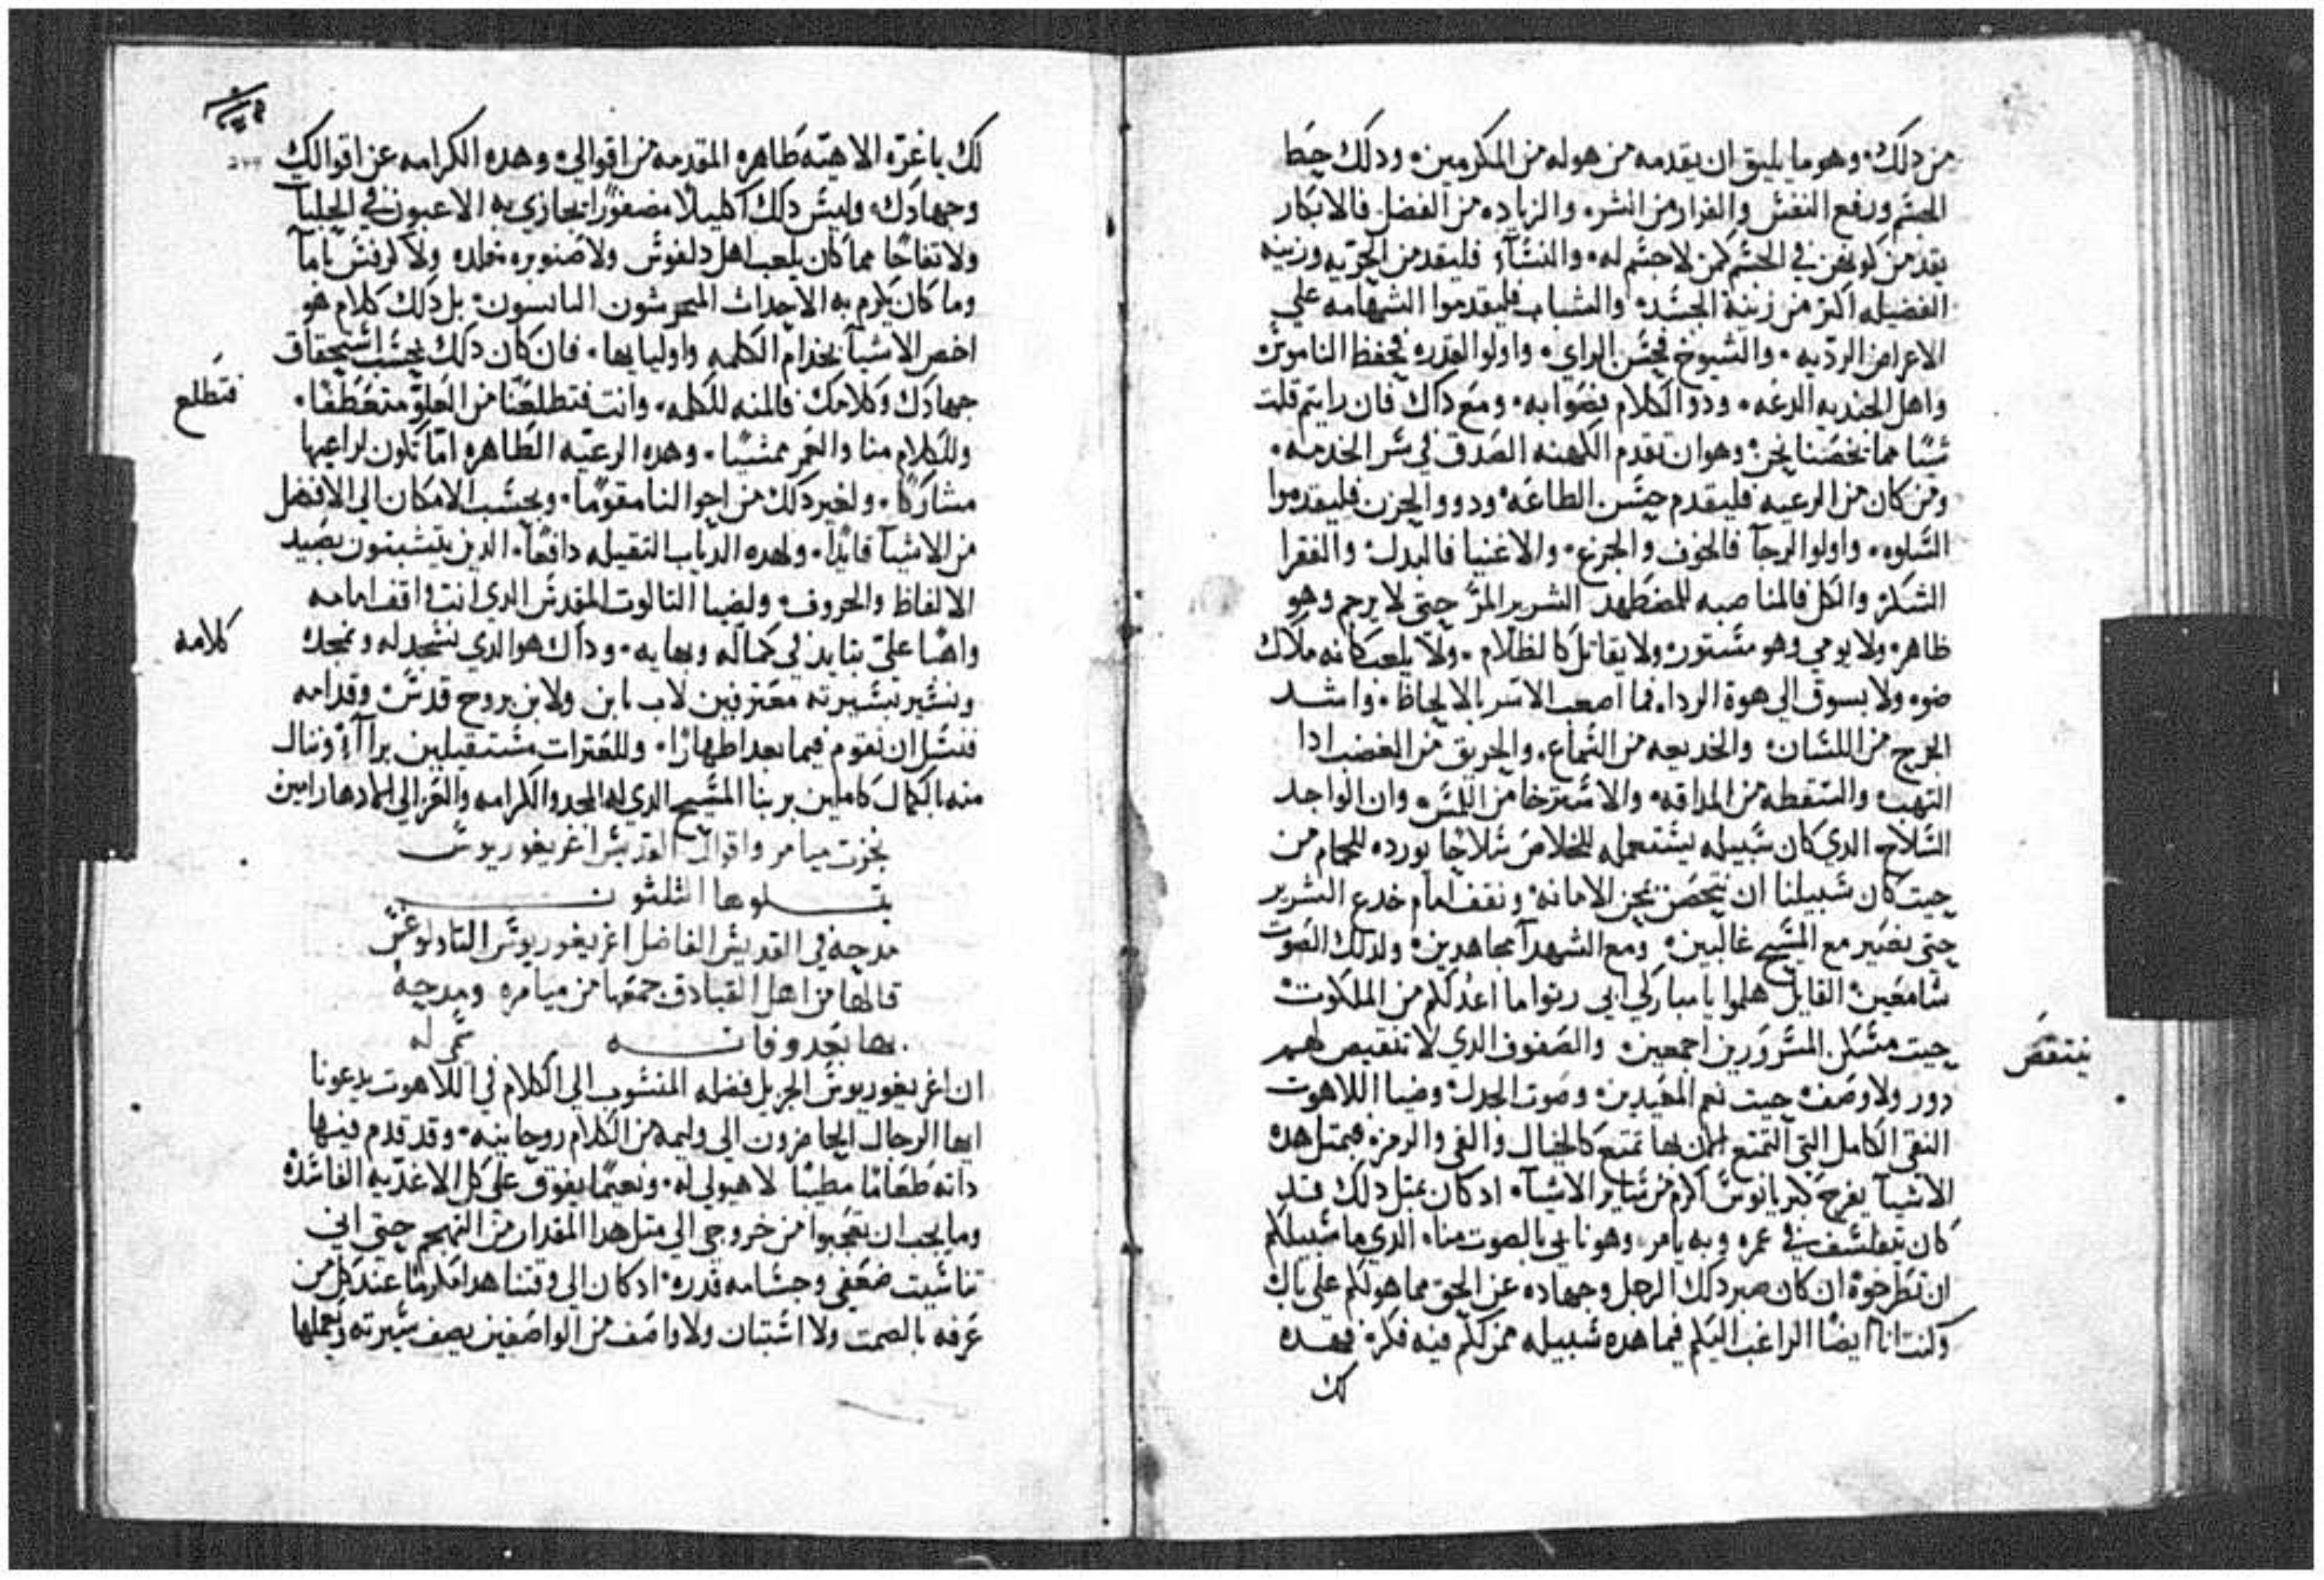 من دلك، وهو ما يليق ان يقدمه من هو له من المكرمين، ودلك حط
الحشم ورفع النفس والفرار من الشره والزياده من الفضل فالابكار
يقدمن كونهن في الحشم كمن لا جشم له، والنشآء فليقدمن الحريه وزينه
الفضيله اكتر من زينة الجسد، والشباب فليقدموا الشهامه علي
الاعراض الرديه، والشيوخ فحسن الراي، واولوا القدره فحفظ الناموس
واهل الجنديه الدعه، ودو الكلام بصوابه، ومع داك فان رايتم قلت
شيا مما يخصنا نحن، وهو ان تقدم الكهنه الصدق في سر الخدمه،
ومن كان من الرعيه فليقدم حسن الطاعه، ودووا الحزن فليقدموا
السلوه، واولوا الرجآ فالخوف والجزع، والاغنيا فالبدل، والفقرا
الشكر، والكل فالمناصبه للمضطهد الشرير المر حتى لا يرجم وهو
ظاهر، ولا يومي وهو مستور، ولا يقاتل كالظلام، ولا يلعب كانه ملاك
ضوء، ولا يسوق الي هوة الرداء، فما اصعب الاسر بالالحاظ، واشد
الجرح من اللسان، والخديعه من السماع، والحريق من الغضب ادا
التهب، والسقطه من المداقه، والاسترخا من اللمس، وان الواجد
السلاح الدي كان سبيله يستعمله للخلاص سلاحا يورده للحمام من
حيت كان سبيلنا ان نتحصن نحن الامانه، ونقف امام خدع الشرير
حتى نصير مع المسيح غالبين، ومع الشهدآ مجاهدين، ولدلك الصوت
سامعين، القايل هلموا يا مباركي ابي رتوا ما اعد لكم من الملكوت
حيت مسكن المسرورين اجمعين، والصفوف الدي لا تنقبض لهم
ينتقض
دور ولا وصف، حيت نعم المعيدين، وصوت الجدل، وضيا اللاهوت
النقي الكامل التي التمتع الان بها تمتع كالخيال والفي والرمزه فبمتل هده
الاشيآ يفرح كبريانوس اكرم من سائر الاشيآء ادكان بمتل دلك قد
كان يتفلسف في عمره وبه يامر، وهو نا بي بالصوت مناء الدي ما سبيلكم
ان تطرحوه ان كان صبر دلك الرجل وجهاده عن الحق مما هو لكم علي بال
وكنت انا ايضا الراغب اليكم فيما هده سبيله ممن لكم فيه فكره فهده
لك
لك يا غرة الاهيه طاهره المقدمه من اقوالي، وهده الكرامه عن اقوالك
وجهادك، وليس دلك اكليلا مضفورا يجازي به الاعبون في الحلبات
ولا تفاحا مما كان يلعب اهل دلفوس ولا صنوبره مخلده ولا كرفس ياما
وما كان يكرم به الاحداث المنحوسون البايسون، بل دلك كلام هو
اخص الاشيآ بخدام الكلمه واوليايها، فان كان دلك بحسب استحقاق
جهادك وكلامك فالمنه للكلمه، وانت فتطلعنا من العلو متعطفا،
فتطلع
وللكلام منا والعمر ممشيا، وهده الرعيه الطاهره اما تكون لراعيها
مشاركا، ولغير دلك من احوالنا مقوما، وبحسب الامكان الي الافضل
من الاشيآ قايدا، ولهده الدياب التقيله دافعا، الدين يتشبتون بصيد
الالفاظ والحروف، ولضيا التالوت المقدس الدي انت واقف امامه
كلامه
واهبا علي بتايد في كماله وبهايه، وداك هو الدي نسجد له ونمجده
ونسير بسيرته معترفين لاب بابن ولابن بروح قدس، وقدامه
فنسل ان نقوم فيما بعد اطهارا، وللعترات مستقيلين برآآء، وننال
منه بالكمال كاملين بربنا المسيح الدي له المجد والكرامه والعز الي اباد الدهار امين
نجزت ميامر واقوال القديس اغريغوريوس
يتلوها الثلثون
مدحه في القديس الفاضل اغريغوريوس التاولوغس
قالها من اهل القبادق جمعها من ميامره ومدحه
بها بعد وفاته نمر له
ان اغريغوريوس الجزيل فضله المنسوب الي الكلام في اللاهوت يدعونا
ايها الرجال الحاضرون الي وليمه من الكلام روحانيه، وقد قدم فيها
داته طعاما مطيبا لا هيولي له، ونعيما يفوق علي كل الاغديه الفاسده
وما يجب ان تعجبوا من خروجي الي متل هدا المقدار من التهجم حتى اني
تناسيت ضعفي وجسامه قدره، ادكان الي وقتنا هدا مكرما عند كل من
عرفه بالصمت ولا استبان ولا واصف من الواصفين يصف سيرته ويعملها